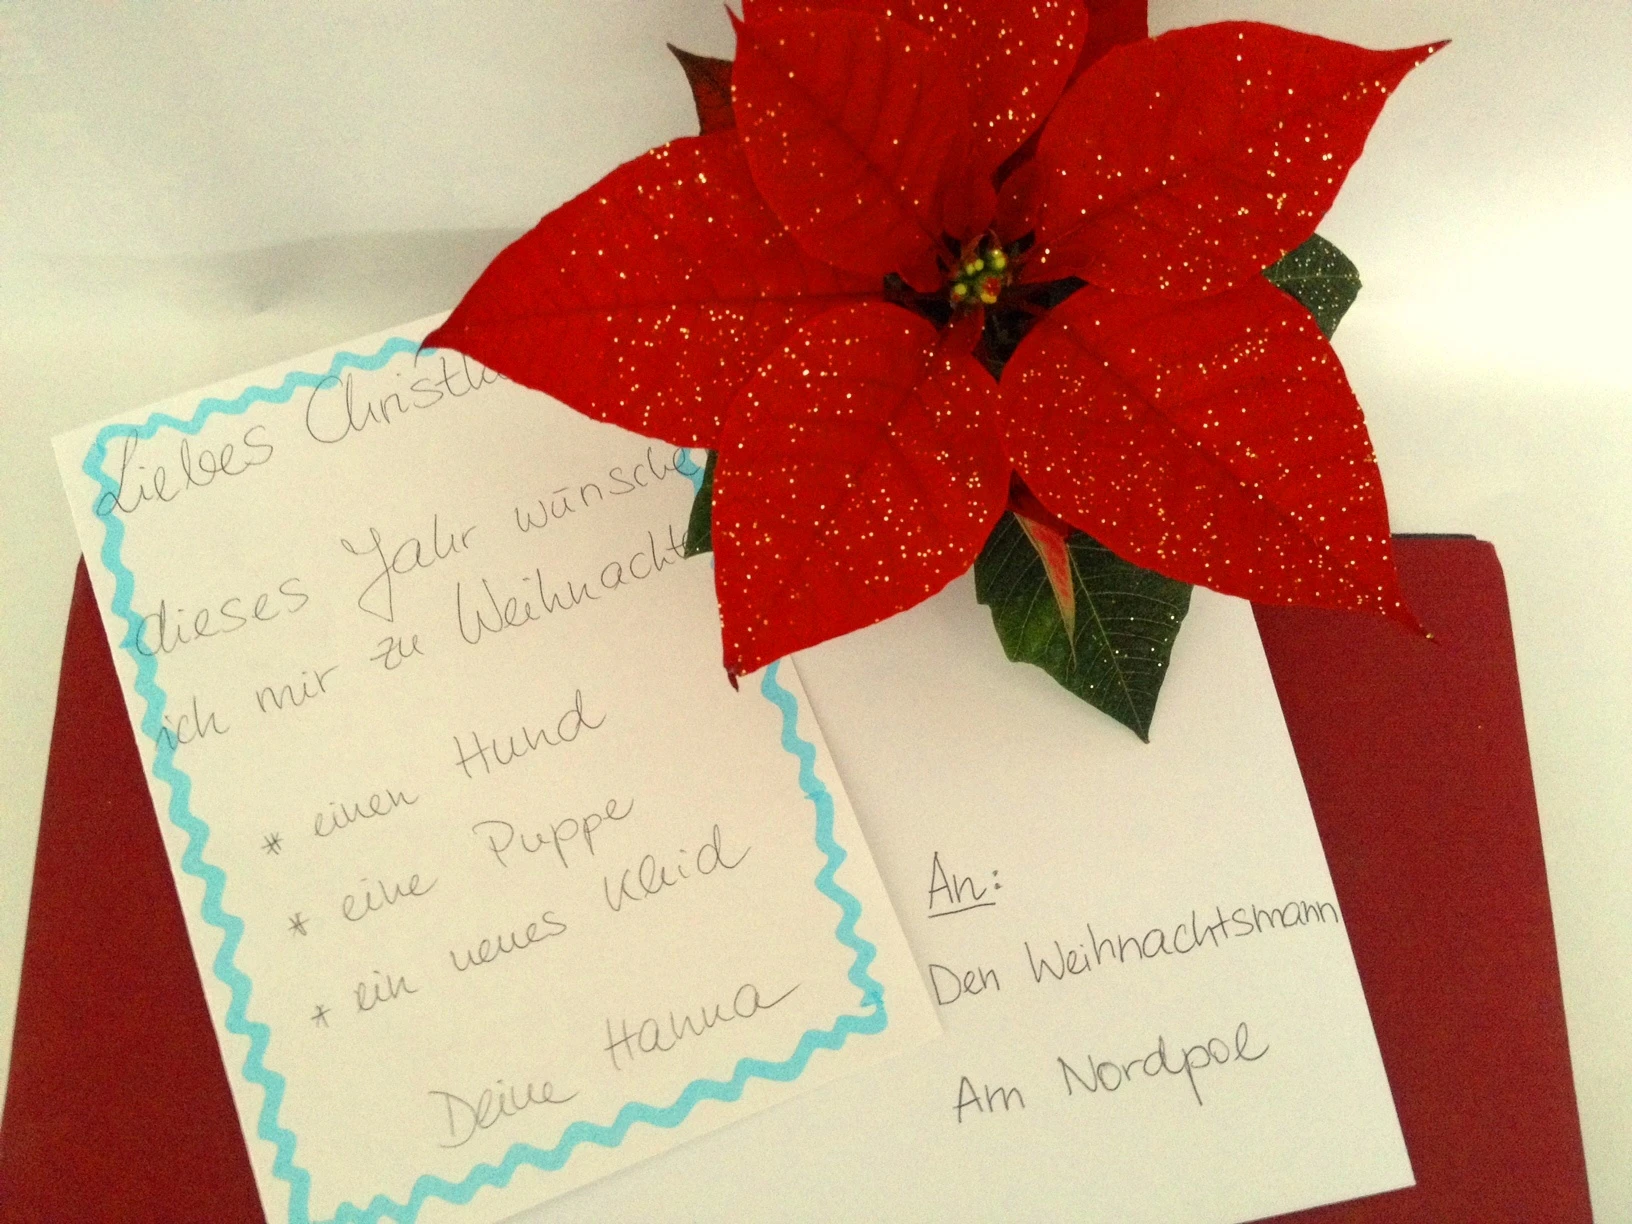 Liebes
dieses Jahr wünsche
ich mir zu
* einen Hund
* eine Puppe
* ein neues Kleid
Deine Hanna
An:
Den Weihnachtsmann
Am Nordpol